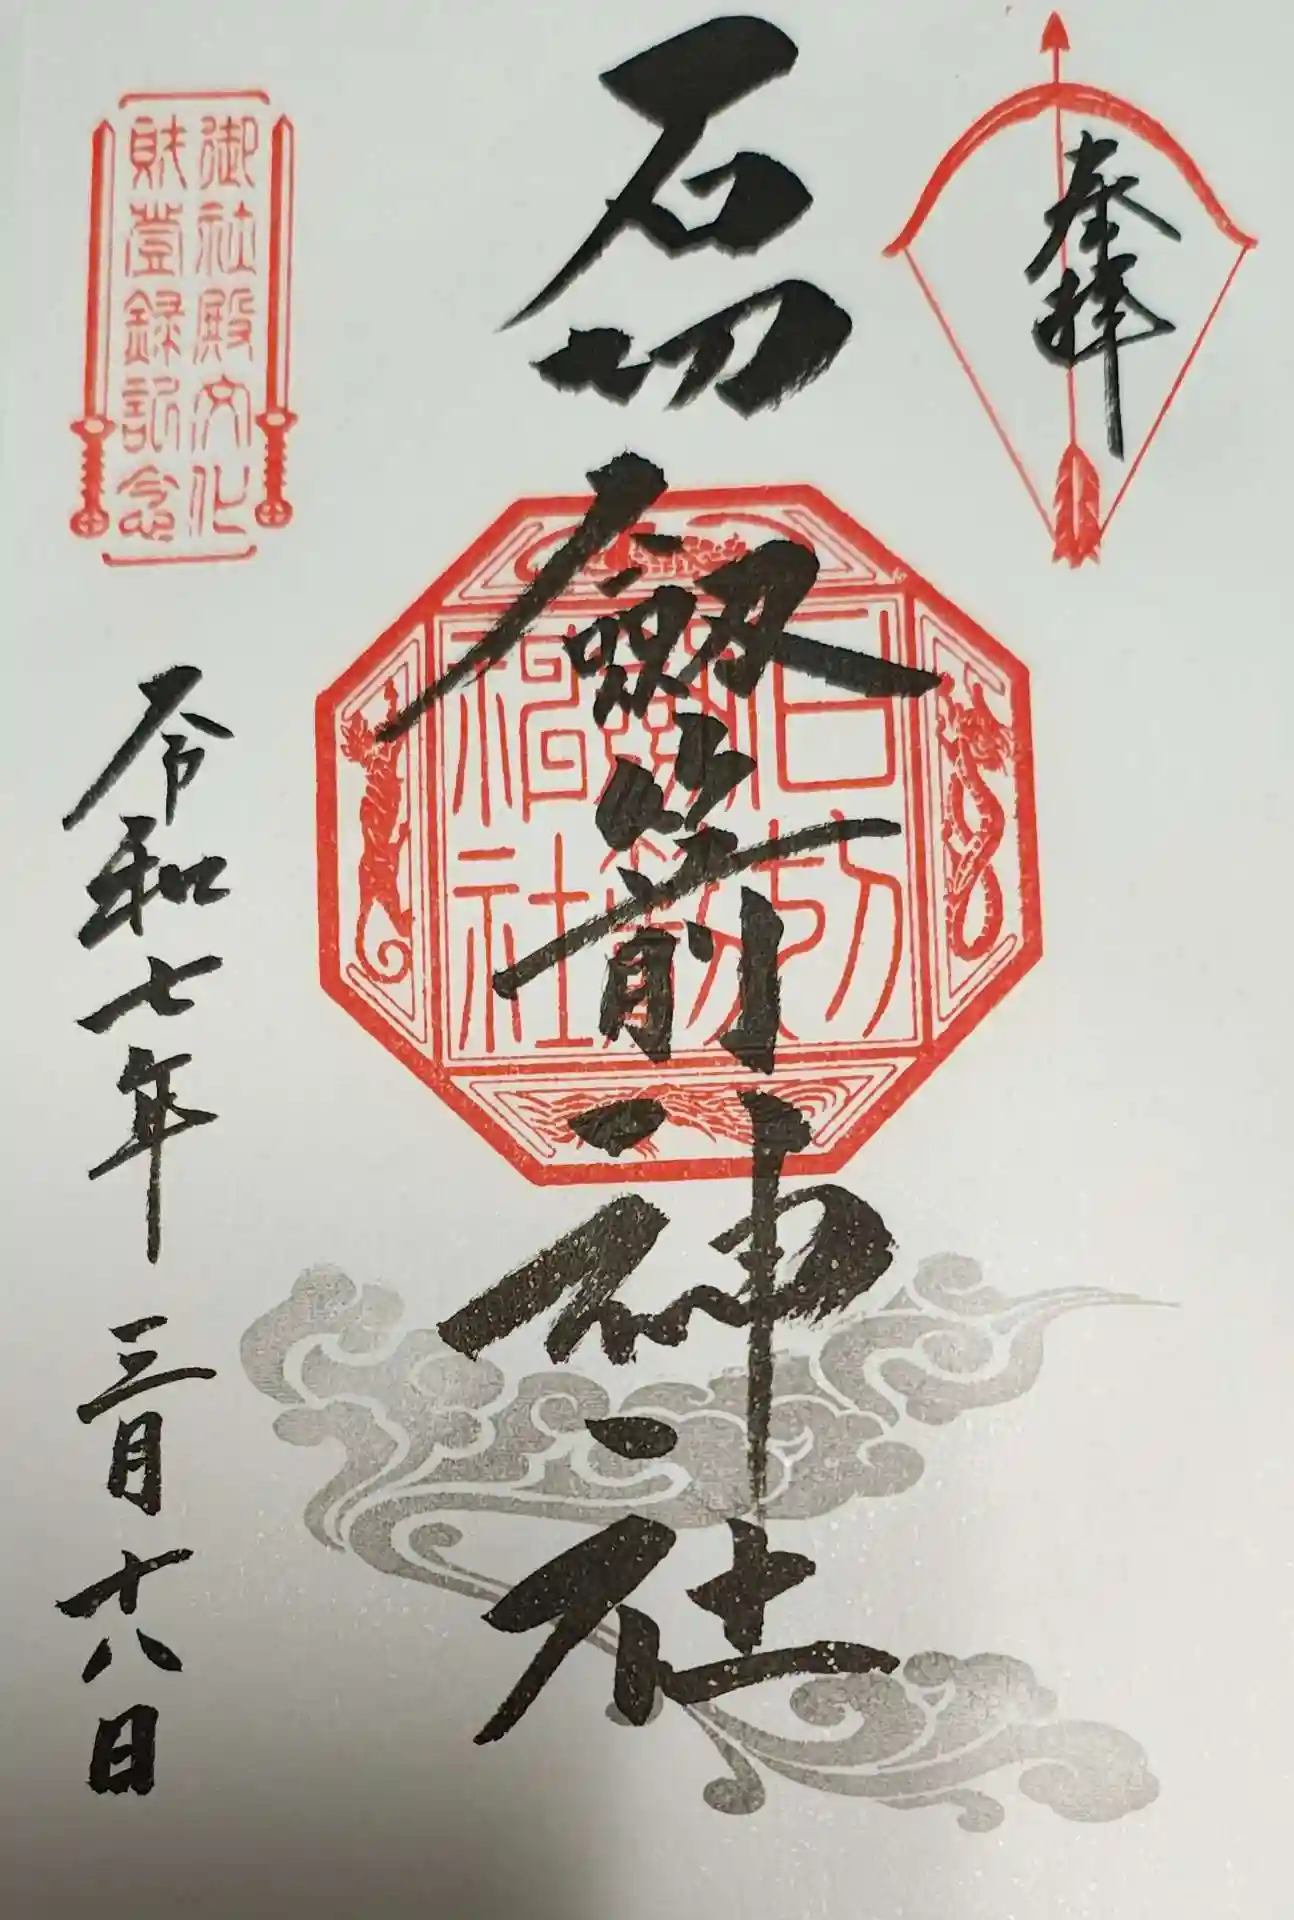 奉拝
石切劔箭神社
石切
劔箭
神社
御社殿文化
財登録記念
令和七年三月十八日